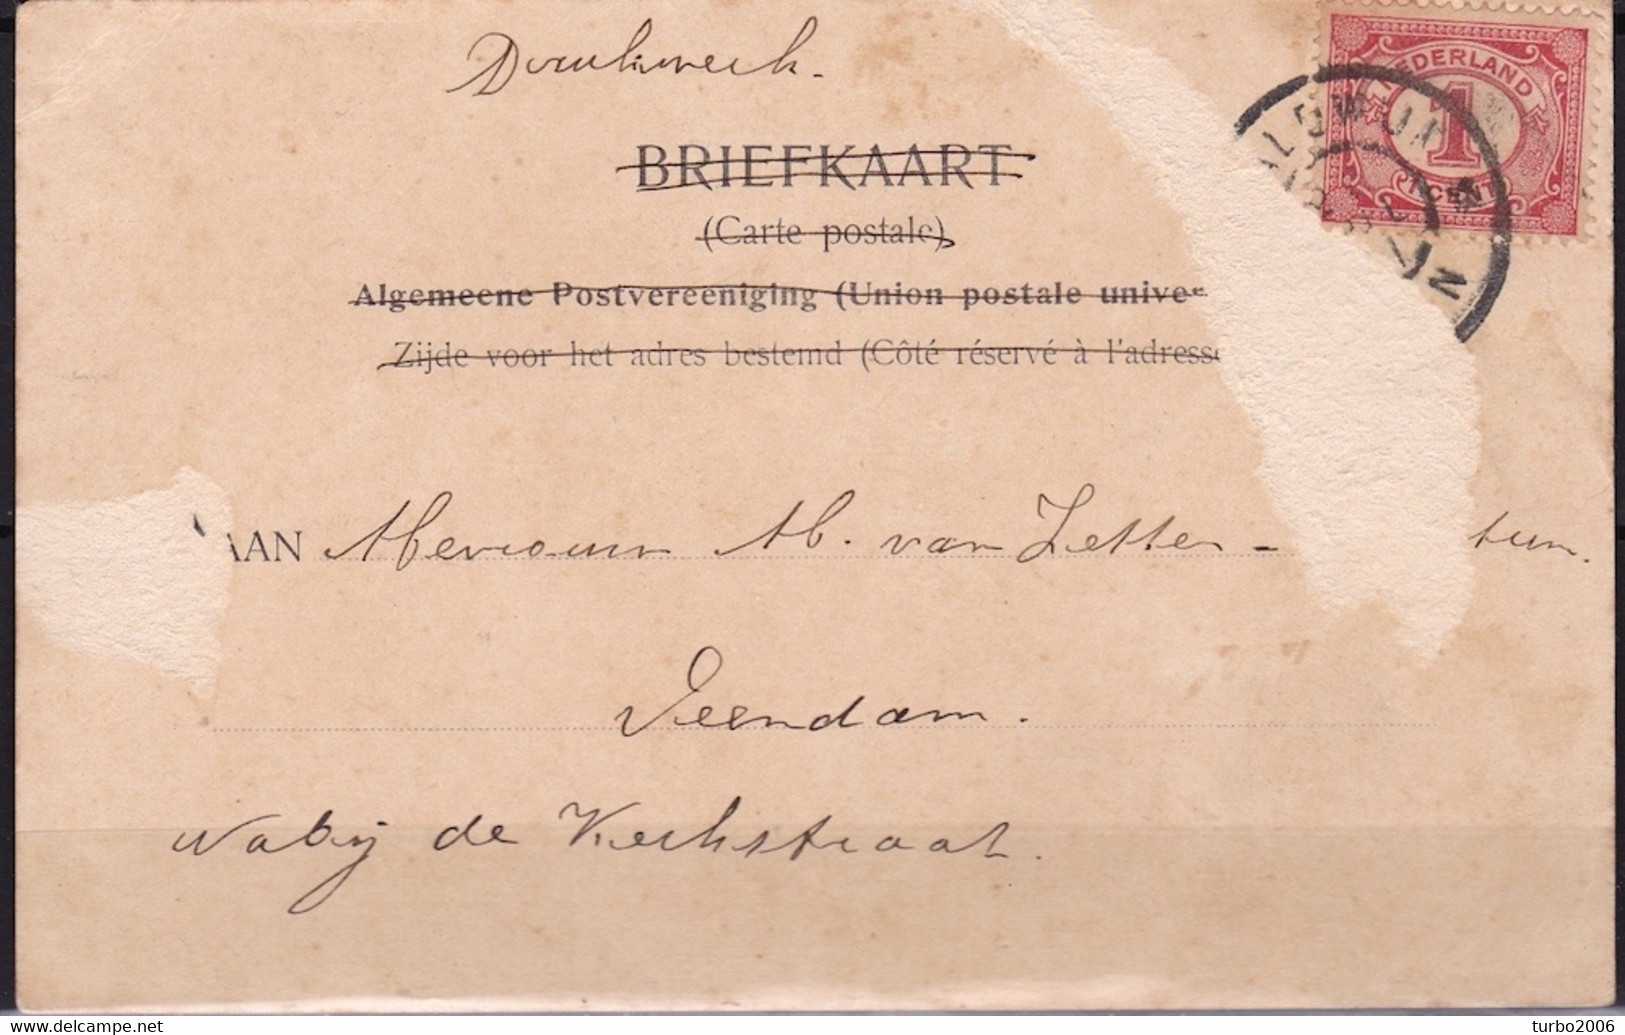 Drukwerk.
NEDERLAND
1
1 CENT
BRIEFKAART
(Carte postale)
Algemeene Postvereeniging (Union postale univer
Zijde voor het adres bestemd (Côté réservé à l'adresse
AAN Mevrouw M. van Letten -
Veendam.
nabij de Kerkstraat.
www.delcampe.net
turbo2006